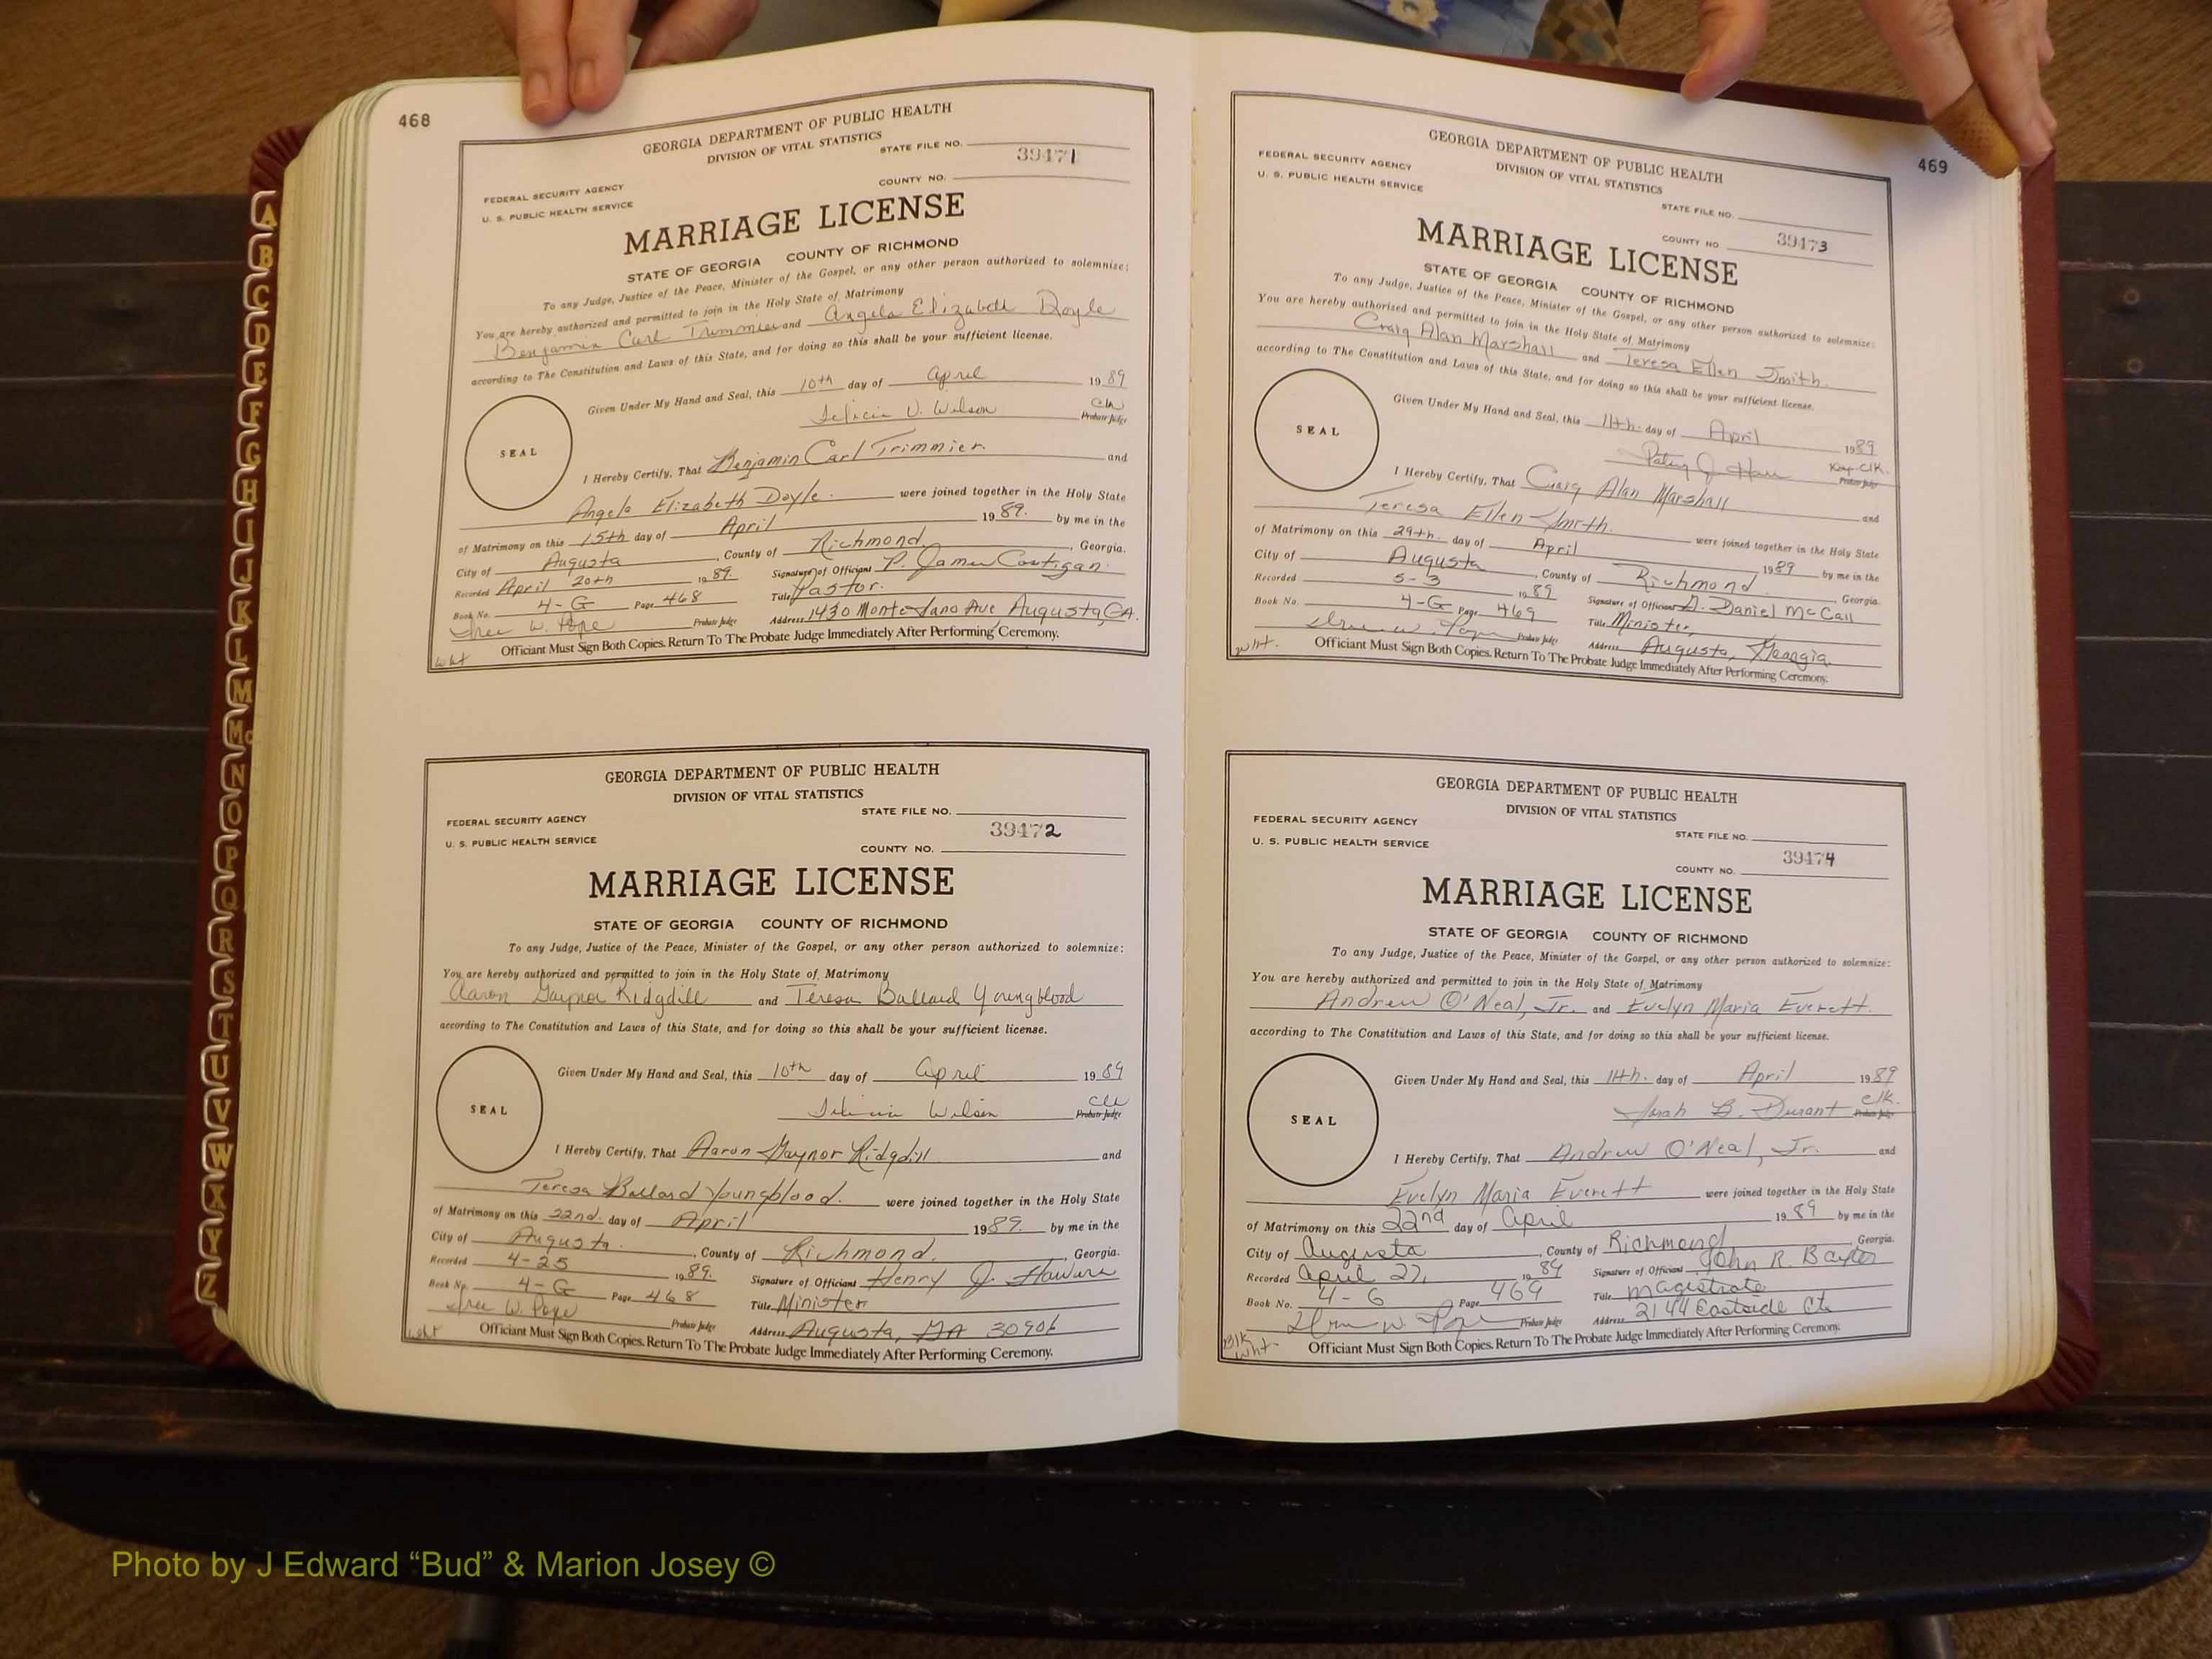 468
GEORGIA DEPARTMENT OF PUBLIC HEALTH
DIVISION OF VITAL STATISTICS
STATE FILE NO.
39471
FEDERAL SECURITY AGENCY
COUNTY NO.
U. S. PUBLIC HEALTH SERVICE
MARRIAGE LICENSE
STATE OF GEORGIA COUNTY OF RICHMOND
To any Judge, Justice of the Peace, Minister of the Gospel, or any other person authorized to solemnize:
You are hereby authorized and permitted to join in the Holy State of Matrimony
Benjamin Carl Trimmier and Angela Elizabeth Doyle
according to The Constitution and Laws of this State, and for doing so this shall be your sufficient license.
Given Under My Hand and Seal, this 10th day of April 1989
Felicia V. Wilson Clk
Probate Judge
SEAL
I Hereby Certify, That Benjamin Carl Trimmier and
Angela Elizabeth Doyle. were joined together in the Holy State
of Matrimony on this 15th day of April 1989. by me in the
City of Augusta, County of Richmond, Georgia.
Recorded April 20th 1989. Signature of Officiant P. James Costigan.
Book No. 4-G Page 468 Title Pastor.
W. Pope Probate Judge Address 1430 Monte Sano Ave, Augusta, GA.
Officiant Must Sign Both Copies. Return To The Probate Judge Immediately After Performing Ceremony.
wht
GEORGIA DEPARTMENT OF PUBLIC HEALTH
DIVISION OF VITAL STATISTICS
STATE FILE NO.
FEDERAL SECURITY AGENCY
39472
U. S. PUBLIC HEALTH SERVICE
COUNTY NO.
MARRIAGE LICENSE
STATE OF GEORGIA COUNTY OF RICHMOND
To any Judge, Justice of the Peace, Minister of the Gospel, or any other person authorized to solemnize:
You are hereby authorized and permitted to join in the Holy State of Matrimony
Aaron Gaynor Ridgdill and Teresa Ballard Youngblood
according to The Constitution and Laws of this State, and for doing so this shall be your sufficient license.
Given Under My Hand and Seal, this 10th day of April 1989
Felicia Wilson Clk
Probate Judge
SEAL
I Hereby Certify, That Aaron Gaynor Ridgdill and
Teresa Ballard Youngblood. were joined together in the Holy State
of Matrimony on this 22nd. day of April 1989. by me in the
City of Augusta. County of Richmond. Georgia.
Recorded 4-25 1989. Signature of Officiant Henry J.
Book No. 4-G Page 468 Title Minister
W. Pope Probate Judge Address Augusta, GA 30906
Officiant Must Sign Both Copies. Return To The Probate Judge Immediately After Performing Ceremony.
wht
469
GEORGIA DEPARTMENT OF PUBLIC HEALTH
DIVISION OF VITAL STATISTICS
FEDERAL SECURITY AGENCY
U. S. PUBLIC HEALTH SERVICE
STATE FILE NO.
COUNTY NO 39473
MARRIAGE LICENSE
STATE OF GEORGIA COUNTY OF RICHMOND
To any Judge, Justice of the Peace, Minister of the Gospel, or any other person authorized to solemnize:
You are hereby authorized and permitted to join in the Holy State of Matrimony
Craig Alan Marshall and Teresa Ellen Smith.
according to The Constitution and Laws of this State, and for doing so this shall be your sufficient license.
Given Under My Hand and Seal, this 11th. day of April 1989
Clk.
Probate Judge
SEAL
I Hereby Certify, That Craig Alan Marshall and
Teresa Ellen Smith. were joined together in the Holy State
of Matrimony on this 29th. day of April 1989 by me in the
City of Augusta, County of Richmond. Georgia.
Recorded 5-3 1989 Signature of Officiant D. Daniel McCall
Book No. 4-G Page 469 Title Minister,
W. Probate Judge Address Augusta, Georgia.
wht.
Officiant Must Sign Both Copies. Return To The Probate Judge Immediately After Performing Ceremony.
GEORGIA DEPARTMENT OF PUBLIC HEALTH
DIVISION OF VITAL STATISTICS
FEDERAL SECURITY AGENCY
STATE FILE NO.
U. S. PUBLIC HEALTH SERVICE
39474
COUNTY NO.
MARRIAGE LICENSE
STATE OF GEORGIA COUNTY OF RICHMOND
To any Judge, Justice of the Peace, Minister of the Gospel, or any other person authorized to solemnize:
You are hereby authorized and permitted to join in the Holy State of Matrimony
Andrew O'Neal, Jr. and Evelyn Maria Everett.
according to The Constitution and Laws of this State, and for doing so this shall be your sufficient license.
Given Under My Hand and Seal, this 11th. day of April 1989
B. Durant Clk.
Probate Judge
SEAL
I Hereby Certify, That Andrew O'Neal, Jr. and
Evelyn Maria Everett were joined together in the Holy State
of Matrimony on this 22nd day of April 1989 by me in the
City of Augusta, County of Richmond, Georgia.
Recorded April 27, 1989 Signature of Officiant John R. Baxter
Book No. 4-G Page 469 Title Magistrate
W. Pope Probate Judge Address 2144 Eastside Ct.
Blk
wht
Officiant Must Sign Both Copies. Return To The Probate Judge Immediately After Performing Ceremony.
A
B
C
D
E
F
G
H
I
J
K
L
M
Mc
N
O
P
Q
R
S
T
U
V
W
X
Y
Z
Photo by J Edward “Bud” & Marion Josey ©